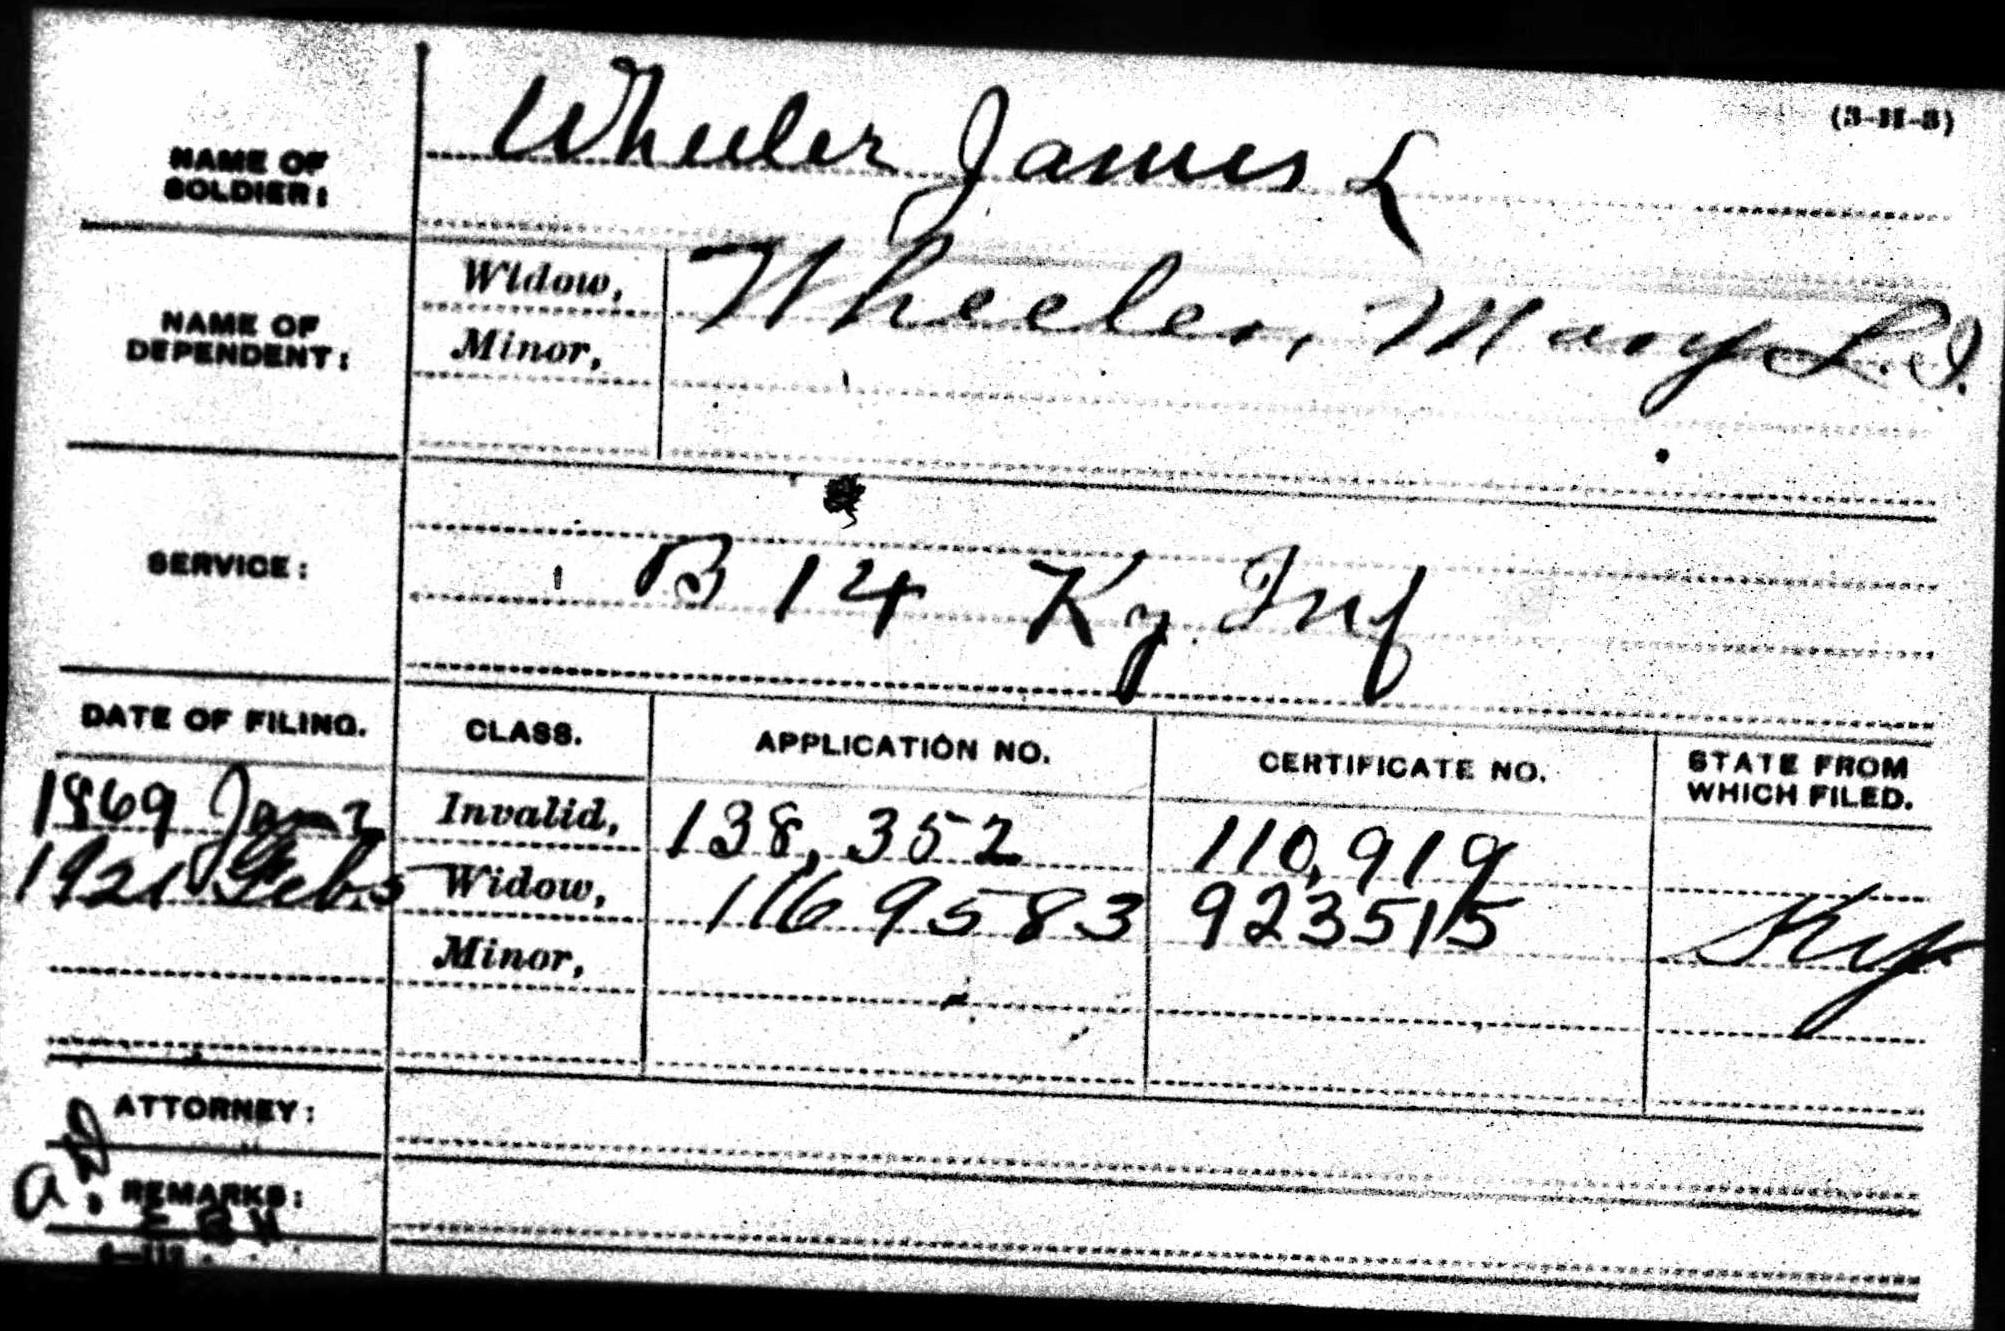 (3-H-3)
NAME OF
SOLDIER:
Wheeler James L
NAME OF
DEPENDENT:
Widow,
Minor,
Wheeler, Mary L. J.
SERVICE:
B 14 Ky. Inf
DATE OF FILING.
CLASS.
APPLICATION NO.
CERTIFICATE NO.
STATE FROM
WHICH FILED.
1869 Jan 2 Invalid, 138,352 110,919
1921 Feb. 5 Widow, 1169583 923515 Ky
Minor,
ATTORNEY:
REMARKS: